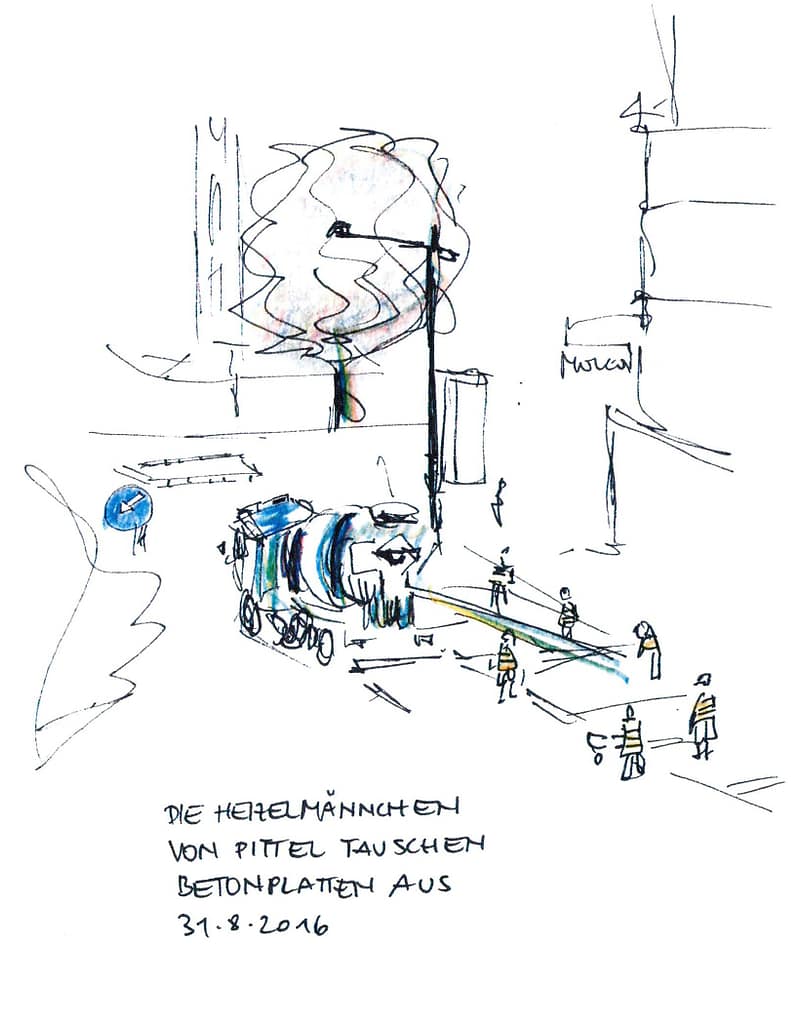 DIE HEINZELMÄNNCHEN
VON PITTEL TAUSCHEN
BETONPLATTEN AUS
31.8.2016